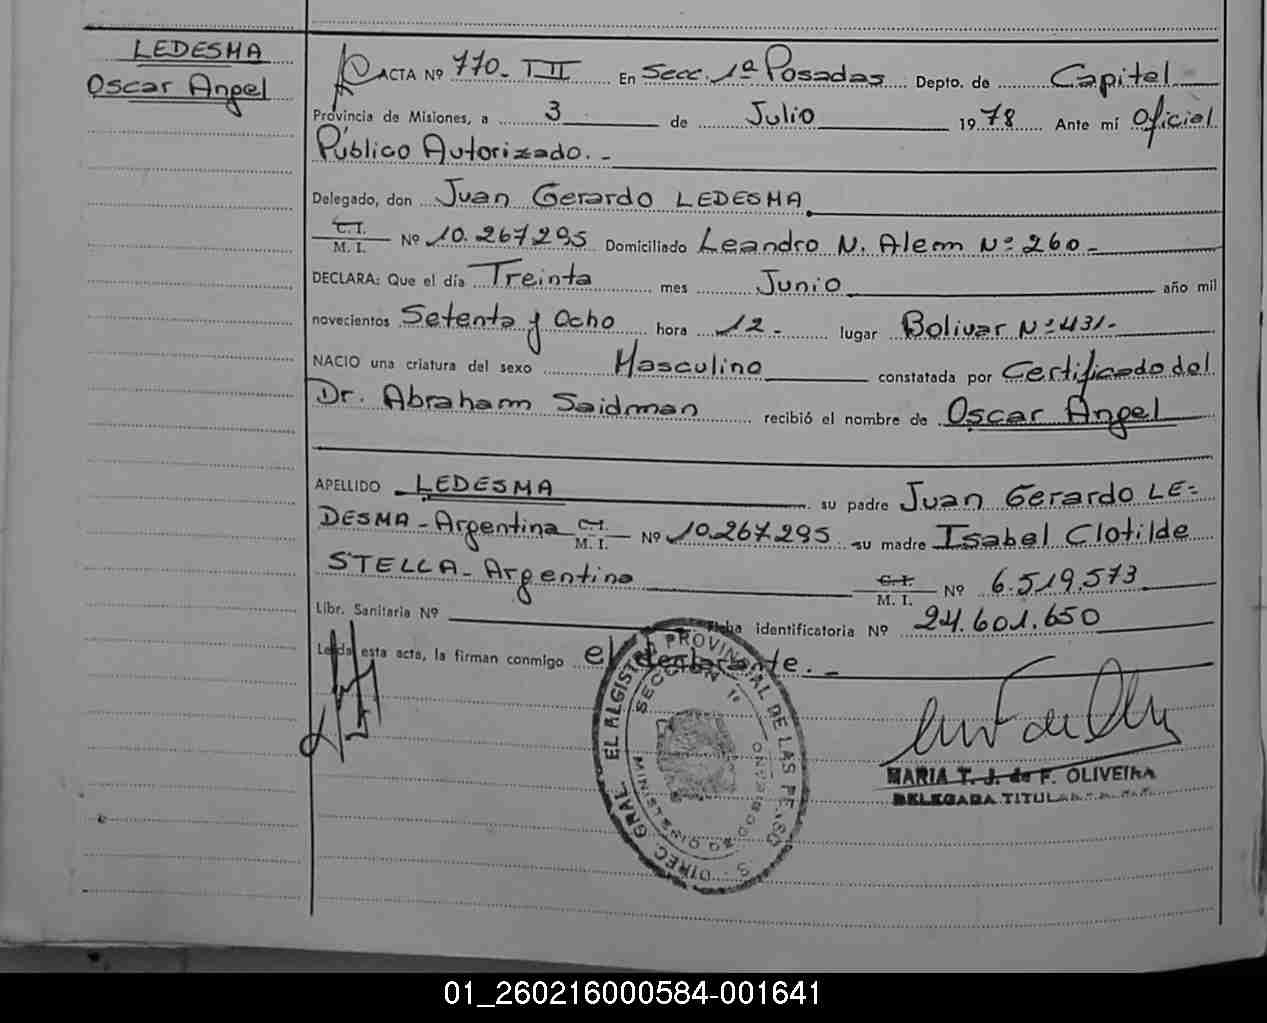 LEDESMA
Oscar Angel
ACTA Nº 770 - T II En Secc. 1ª Posadas Depto. de Capital
Provincia de Misiones, a 3 de Julio 1978 Ante mí Oficial
Público Autorizado. -
Delegado, don Juan Gerardo LEDESMA
C.I. M. I. Nº 10.267.295 Domiciliado Leandro N. Alem Nº 260 -
DECLARA: Que el día Treinta mes Junio año mil
novecientos Setenta y Ocho hora 12 - lugar Bolivar Nº 431 -
NACIO una criatura del sexo Masculino constatada por Certificado del
Dr. Abraham Saidman recibió el nombre de Oscar Angel
APELLIDO LEDESMA su padre Juan Gerardo LE-
DESMA - Argentina C.I. M. I. Nº 10.267.295 su madre Isabel Clotilde
STELLA - Argentina C.I. M. I. Nº 6.519.573
Libr. Sanitaria Nº Ficha identificatoria Nº 24.601.650
Leída esta acta, la firman conmigo el declarante. -
SECCION 1ª
MARIA T. J. de F. OLIVEIRA
DELEGADA TITULAR
01_260216000584-001641